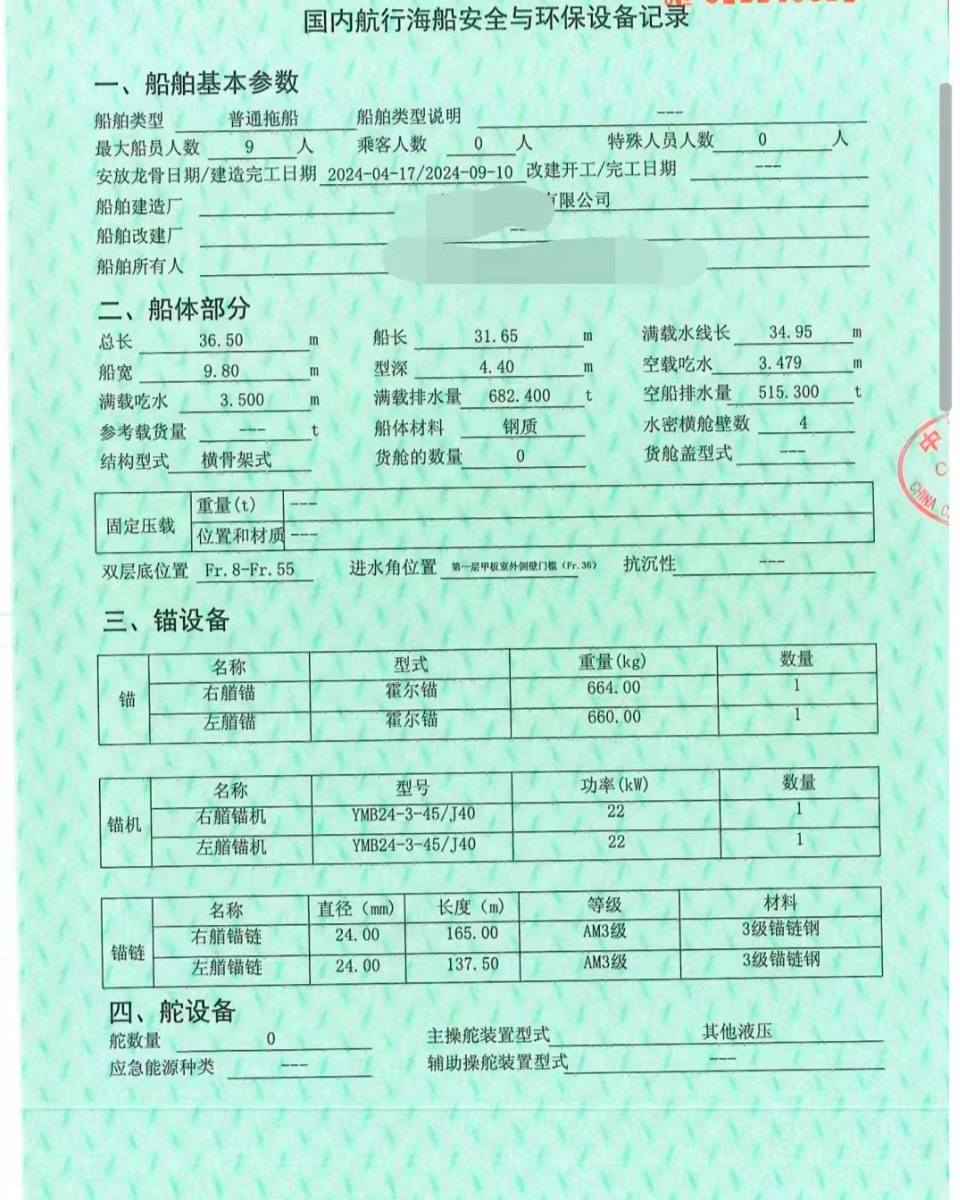 国内航行海船安全与环保设备记录
一、船舶基本参数
船舶类型 普通拖船 船舶类型说明 ---
最大船员人数 9 人 乘客人数 0 人 特殊人员人数 0 人
安放龙骨日期/建造完工日期 2024-04-17/2024-09-10 改建开工/完工日期 ---
船舶建造厂 有限公司
船舶改建厂 --
船舶所有人
二、船体部分
总长 36.50 m 船长 31.65 m 满载水线长 34.95 m
船宽 9.80 m 型深 4.40 m 空载吃水 3.479 m
满载吃水 3.500 m 满载排水量 682.400 t 空船排水量 515.300 t
参考载货量 --- t 船体材料 钢质 水密横舱壁数 4
结构型式 横骨架式 货舱的数量 0 货舱盖型式 ---
固定压载 重量(t) ---
位置和材质 ---
双层底位置 Fr.8-Fr.55 进水角位置 第一层甲板室外侧壁门槛（Fr.36） 抗沉性 ---
三、锚设备
锚 名称 型式 重量(kg) 数量
右艏锚 霍尔锚 664.00 1
左艏锚 霍尔锚 660.00 1
锚机 名称 型号 功率(kW) 数量
右艏锚机 YMB24-3-45/J40 22 1
左艏锚机 YMB24-3-45/J40 22 1
锚链 名称 直径（mm） 长度（m） 等级 材料
右艏锚链 24.00 165.00 AM3级 3级锚链钢
左艏锚链 24.00 137.50 AM3级 3级锚链钢
四、舵设备
舵数量 0 主操舵装置型式 其他液压
应急能源种类 --- 辅助操舵装置型式 ---
中
CHINA C